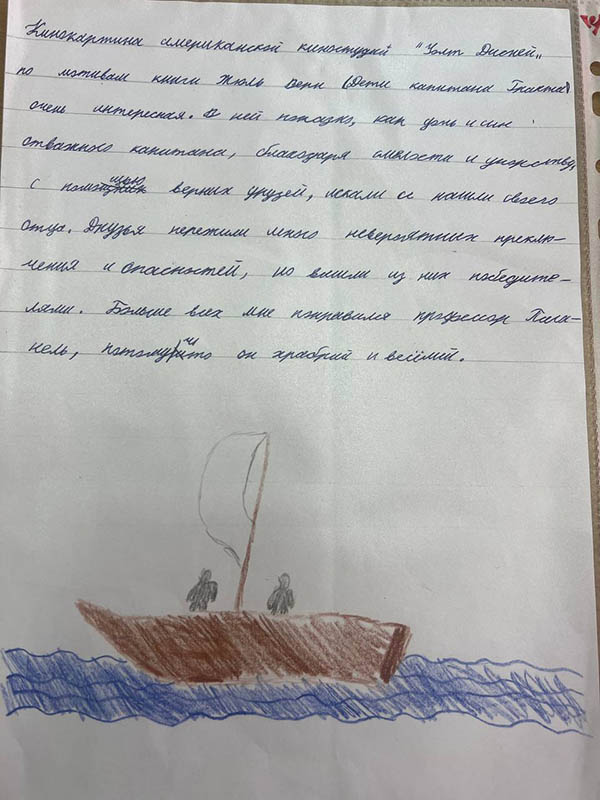 Кинокартина американской киностудий "Уолт Дисней"
по мотивам книги Жюль Верн (Дети капитана Гранта)
очень интересная. В ней показано, как дочь и син
отважного капитана, благодаря смелости и упорству,
с помощью верних друзей, искали и нашли своего
отца. Друзья пережили много невероятних преклю-
чения и опасностей, но вишли из них победите-
лями. Больше всех мне понравился профессор Пага-
нель, потому что он храбрий и весёлий.